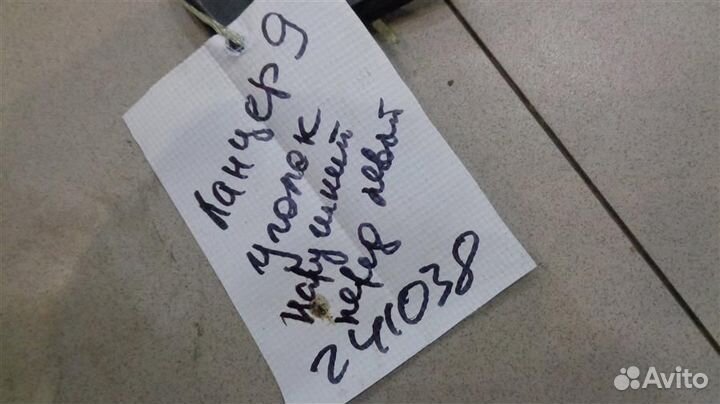 Ланцер 9
уголок
наружний
перед левый
241038
Avito